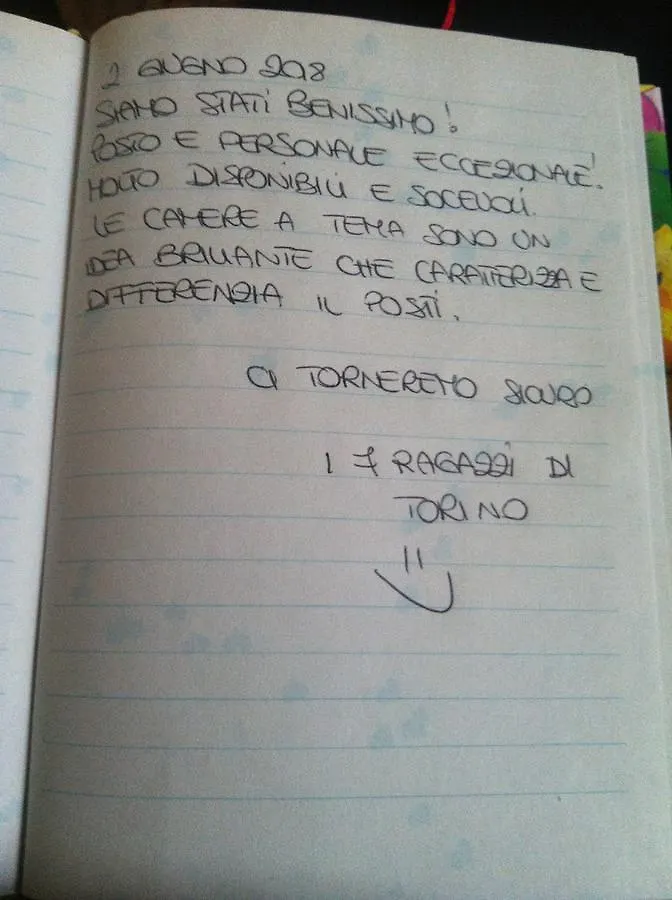 2 GIUGNO 2018
SIAMO STATI BENISSIMO!
POSTO E PERSONALE ECCEZIONALE!
MOLTO DISPONIBILI E SOCEVOLI.
LE CAMERE A TEMA SONO UN
IDEA BRILLANTE CHE CARATTERIZZA E
DIFFERENZIA IL POSTI.
CI TORNEREMO SICURO
I 7 RAGAZZI DI
TORINO